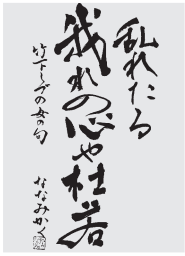 乱れたる
我れの心や杜若
竹下しづの女の句
ななみかく